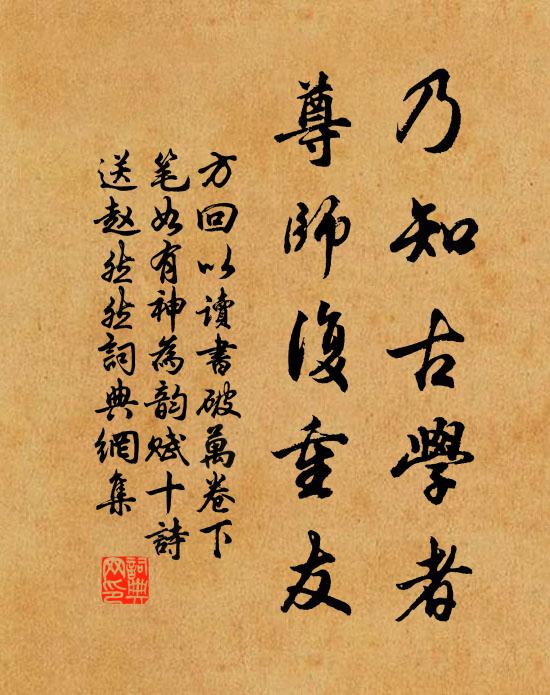 乃知古學者
尊師復重友
方回以讀書破萬卷下
笔如有神為韵赋十詩
送赵然然詞典網集
詞典
网印